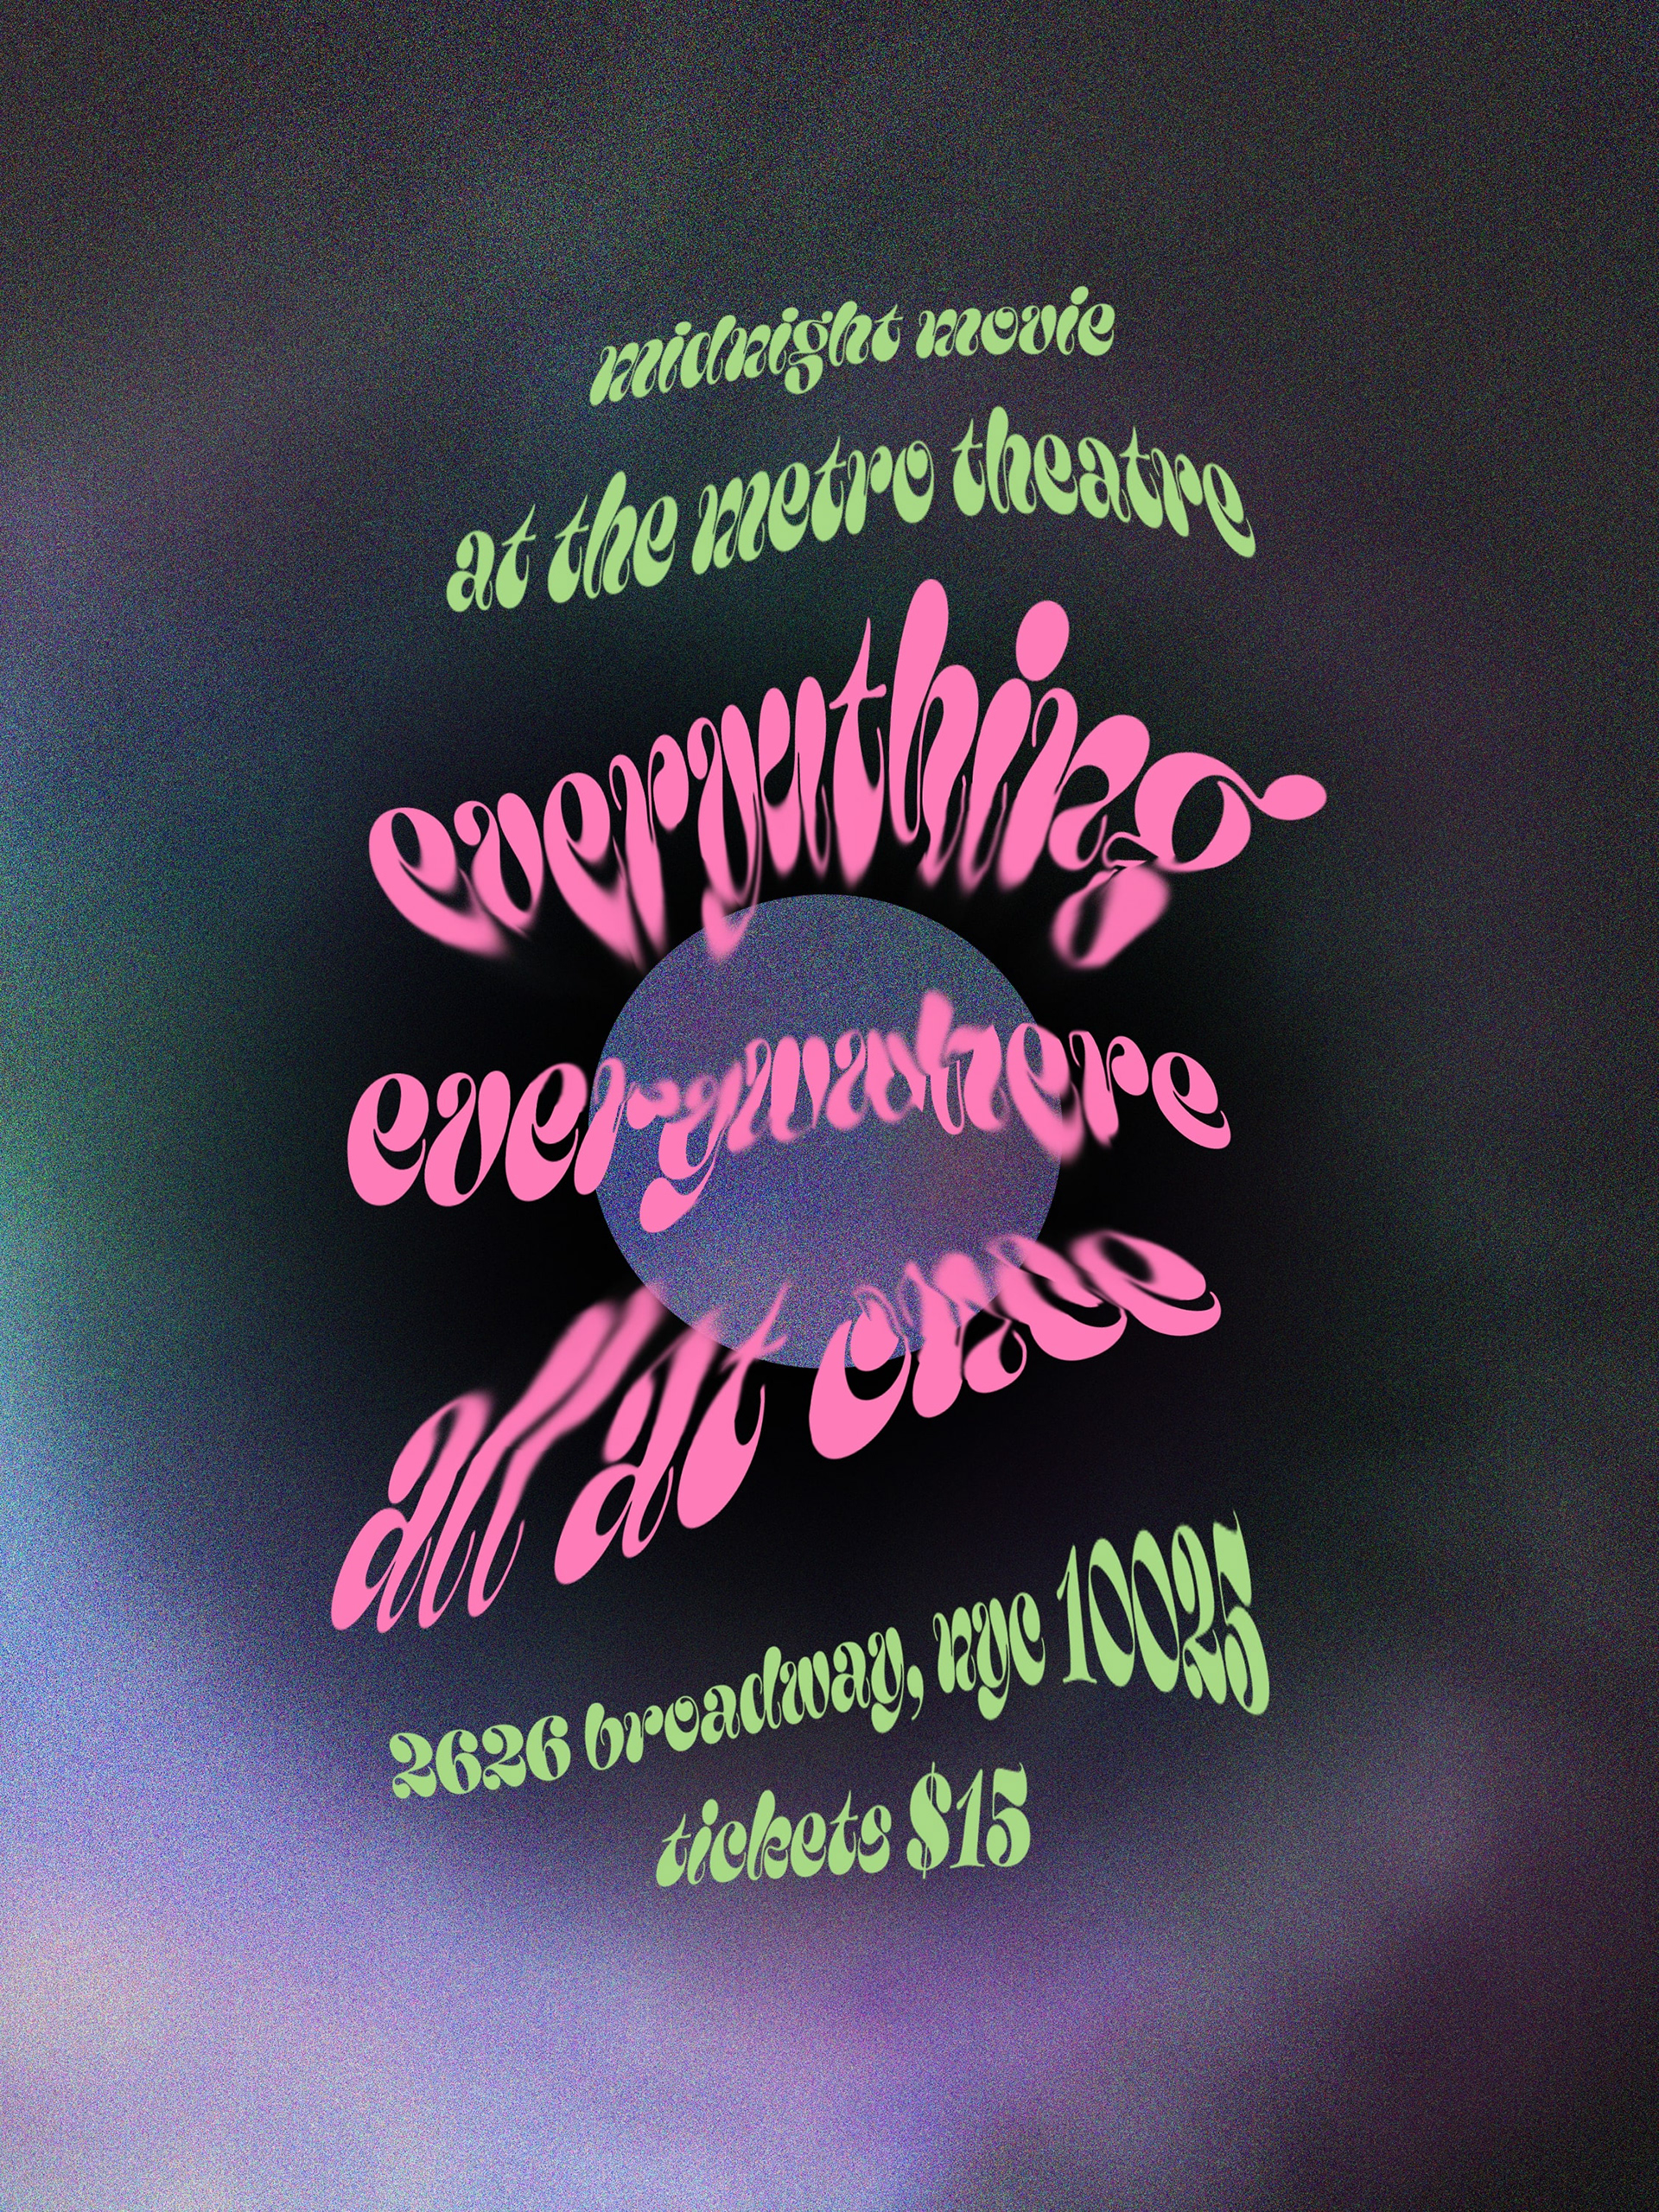 midnight movie
at the metro theatre
everything
everywhere
all at once
2626 broadway, nyc 10025
tickets $15